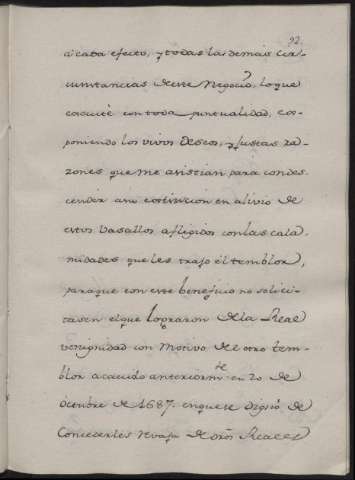 92.
acaba efecto, y todas las demas cir-
cunstancias deeste Negocio, loque
executè contoda puntualidad, ex-
poniendo los vivos deseos, y Justas ra-
zones que me asistian para condes-
cender auna extincion en alivio de
estos Vasallos afligidos conlas cala-
midades queles trajo el temblor,
paraque con este beneficio no solici-
tasen elque lograron dela Real
venignidad con Motivo de otro tem-
blor acaecido anteriormte en 20 de
Octubre de 1687. enquese dignó de
Concederles revaja de dros Reales